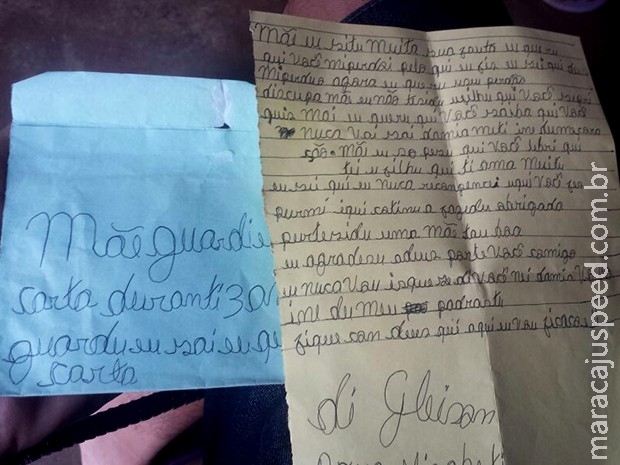 Mãe guardie
carta duranti 3 an
guardu eu sai eu qe
carta
Mãe eu situ muita sua fauta eu queru
qui você miperdoi pelo qui eu fis eu sei qui deus
Miperdua agora eu queru seu perdão
discupa mãe eu não ter sidu u filhu qui você sepri
quis Mãi eu queru qui você saiba qui você
nuca vai sai da mia meti in du meu cora
ção Mãi eu so pesu qui você libri qui
tei u filhu qui ti ama Muitu
eu sei qui eu nuca recompencei u qui você fes
pur mi i qui cotinua fazedu obrigada
pur ter sidu uma Mãe tau boa
eu agradesu a deus por ter você comigo
eu nuca vou isquese di você nei da mia
ime du meu padrasti
fique con deus qui aqui eu vou ficar
di Gleison
maracajuspeed.com.br